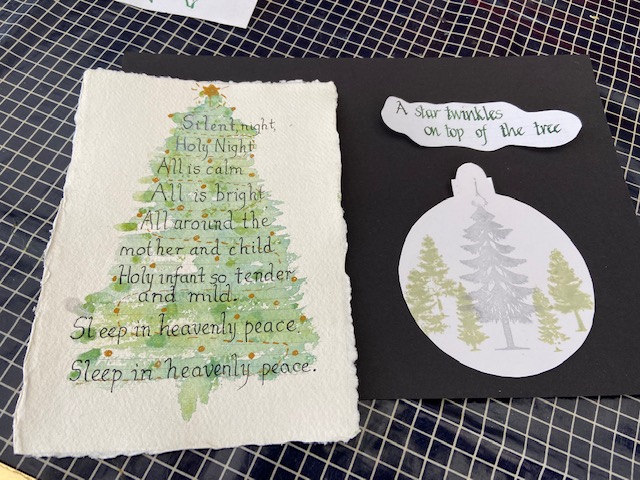 Silent night,
Holy Night
All is calm
All is bright
All around the
mother and child.
Holy infant so tender
and mild.
Sleep in heavenly peace.
Sleep in heavenly peace.
A star twinkles
on top of the tree